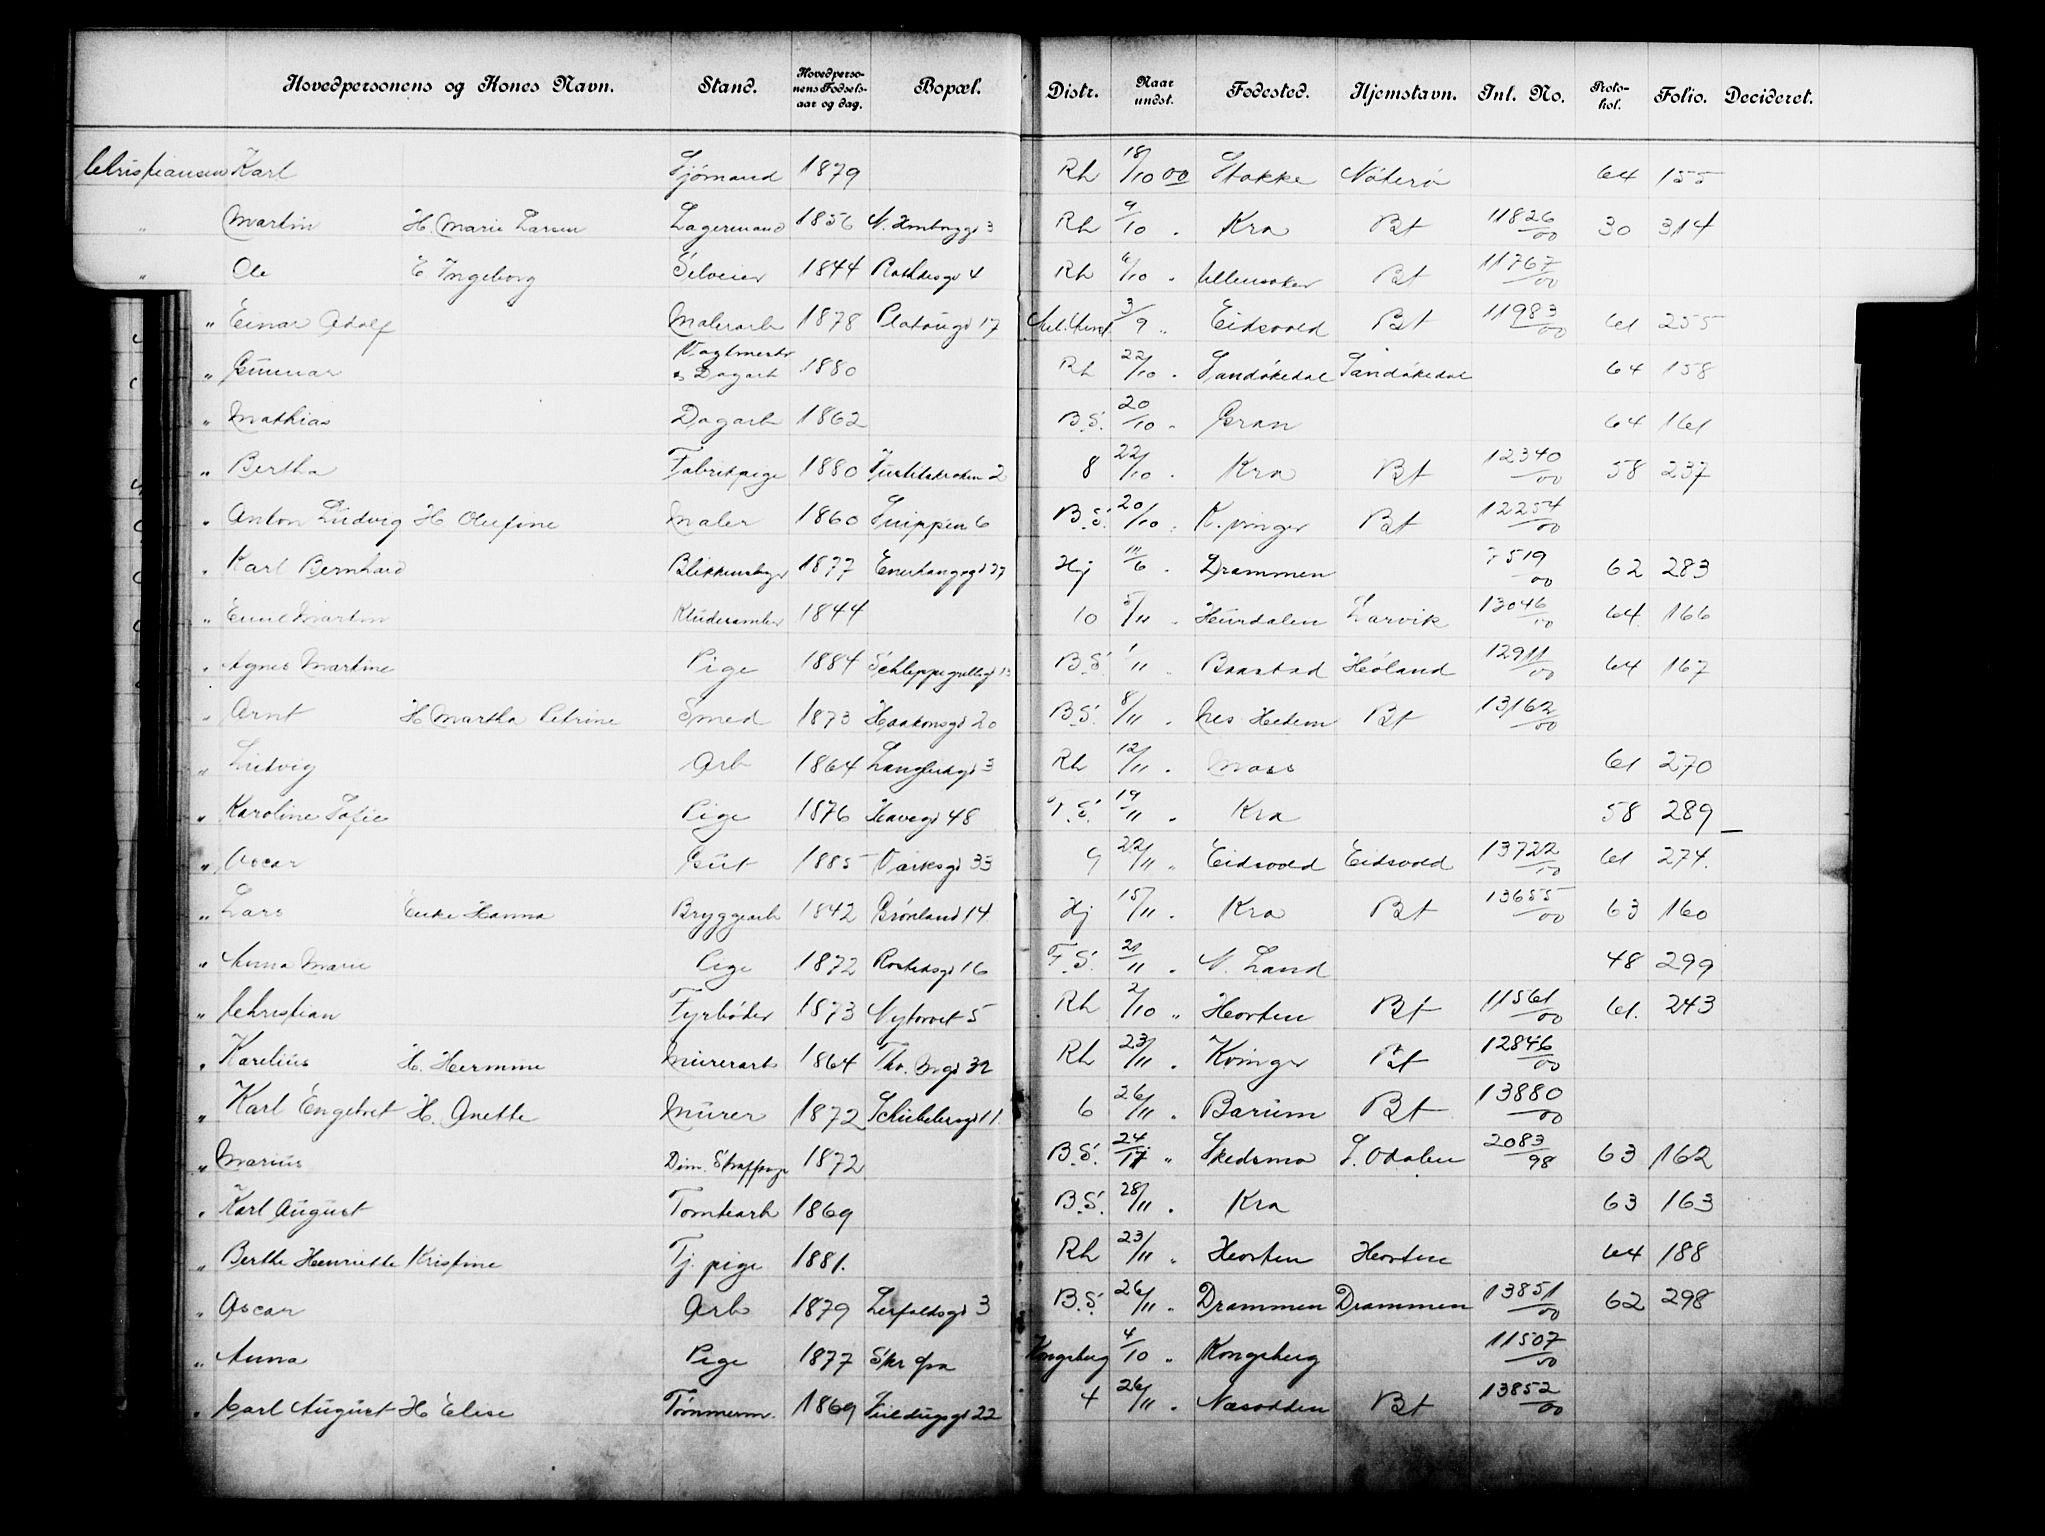 Hovedpersonens og Kones Navn. Stand. Hovedpersonens Fødselsaar og dag. Bopæl. Distr. Naar undst. Fødested. Hjemstavn. Inl. No. Protokol. Folio. Decideret.
Christiansen Karl Sjømand 1879 Rh 18/10 00 Stokke Nøterø 64 155
" Martin H. Marie Larsen Lagermand 1856 3 Rh 9/10 " Kra Bt 11826/00 30 314
" Ole E Ingeborg Selveier 1844 4 Rh 6/10 " Ullensaker Bt 11767/00
" Einar Adolf Malerarb 1878 Platousgd 17 3/9 " Eidsvold Bt 11983/00 61 255
" Gunnar Vagtmestr & Dagarb 1880 Rh 22/10 " Sandøkedal Sandøkedal 64 158
" Mathias Dagarb 1862 B.S. 20/10 " Gran 64 161
" Bertha Fabrikpige 1880 2 8 22/10 " Kra Bt 12340/00 58 237
" Anton Ludvig H Olufine Maler 1860 Snippen 6 B.S. 20/10 " K.vinger Bt 12254/00
" Karl Bernhard Blikkenslager 1877 Enerhauggd 27 Hj 11/6 " Drammen 7519/00 62 283
" Emil Martin Kludesamler 1844 10 5/11 " Hurdalen Larvik 13046/00 64 166
" Agnes Martine Pige 1884 Schleppegrellsgd 13 B.S. 1/11 " Baastad Høland 12911/00 64 167
" Arnt H Martha Petrine Smed 1873 Haakonsgd 20 B.S. 8/11 " Nes Hedem Bt 13162/00
" Ludvig Arb 1864 3 Rh 12/11 " Moss 61 270
" Karoline Sofie Pige 1876 Havegd 48 F.S. 19/11 " Kra 58 289
" Oscar Gut 1885 Værksgd 33 9 22/11 " Eidsvold Eidsvold 13722/00 61 274.
" Lars Enke Hanna Bryggearb 1842 Grønland 14 Hj 15/11 " Kra Bt 13655/00 63 160
" Anna Marie Pige 1872 Rostedsgd 16 F.S. 21/11 " N. Land 48 299
" Christian Fyrbøder 1873 Nytorvet 5 Rh 2/10 " Horten Bt 11561/00 61. 243
" Karelius H. Hermine Murerarb 1864 Tho. Mgd 32 Rh 23/11 " Kvinger Bt 12846/00
" Karl Engebret H. Anette Murer 1872 Schubelersgd 11 6 26/11 " Bærum Bt 13880/00
" Marius Dim. Straffange 1872 B.S. 24/11 " Skedsmo S. Odalen 2083/98 63 162
" Karl August Tomtearb 1869 B.S. 28/11 " Kra 63 163
" Berthe Henriette Kristine Tj. pige 1881. Rh 23/11 " Horten Horten 64 188
" Oscar Arb 1879 Lerfaldsgd 3 B.S. 26/11 " Drammen Drammen 13851/00 62 298
" Anna Pige 1877 Kongsberg 4/10 " Kongsberg 11507/00
" Carl August H Elise Tømmerm. 1869 22 4 26/11 " Næsodden Bt 13852/00